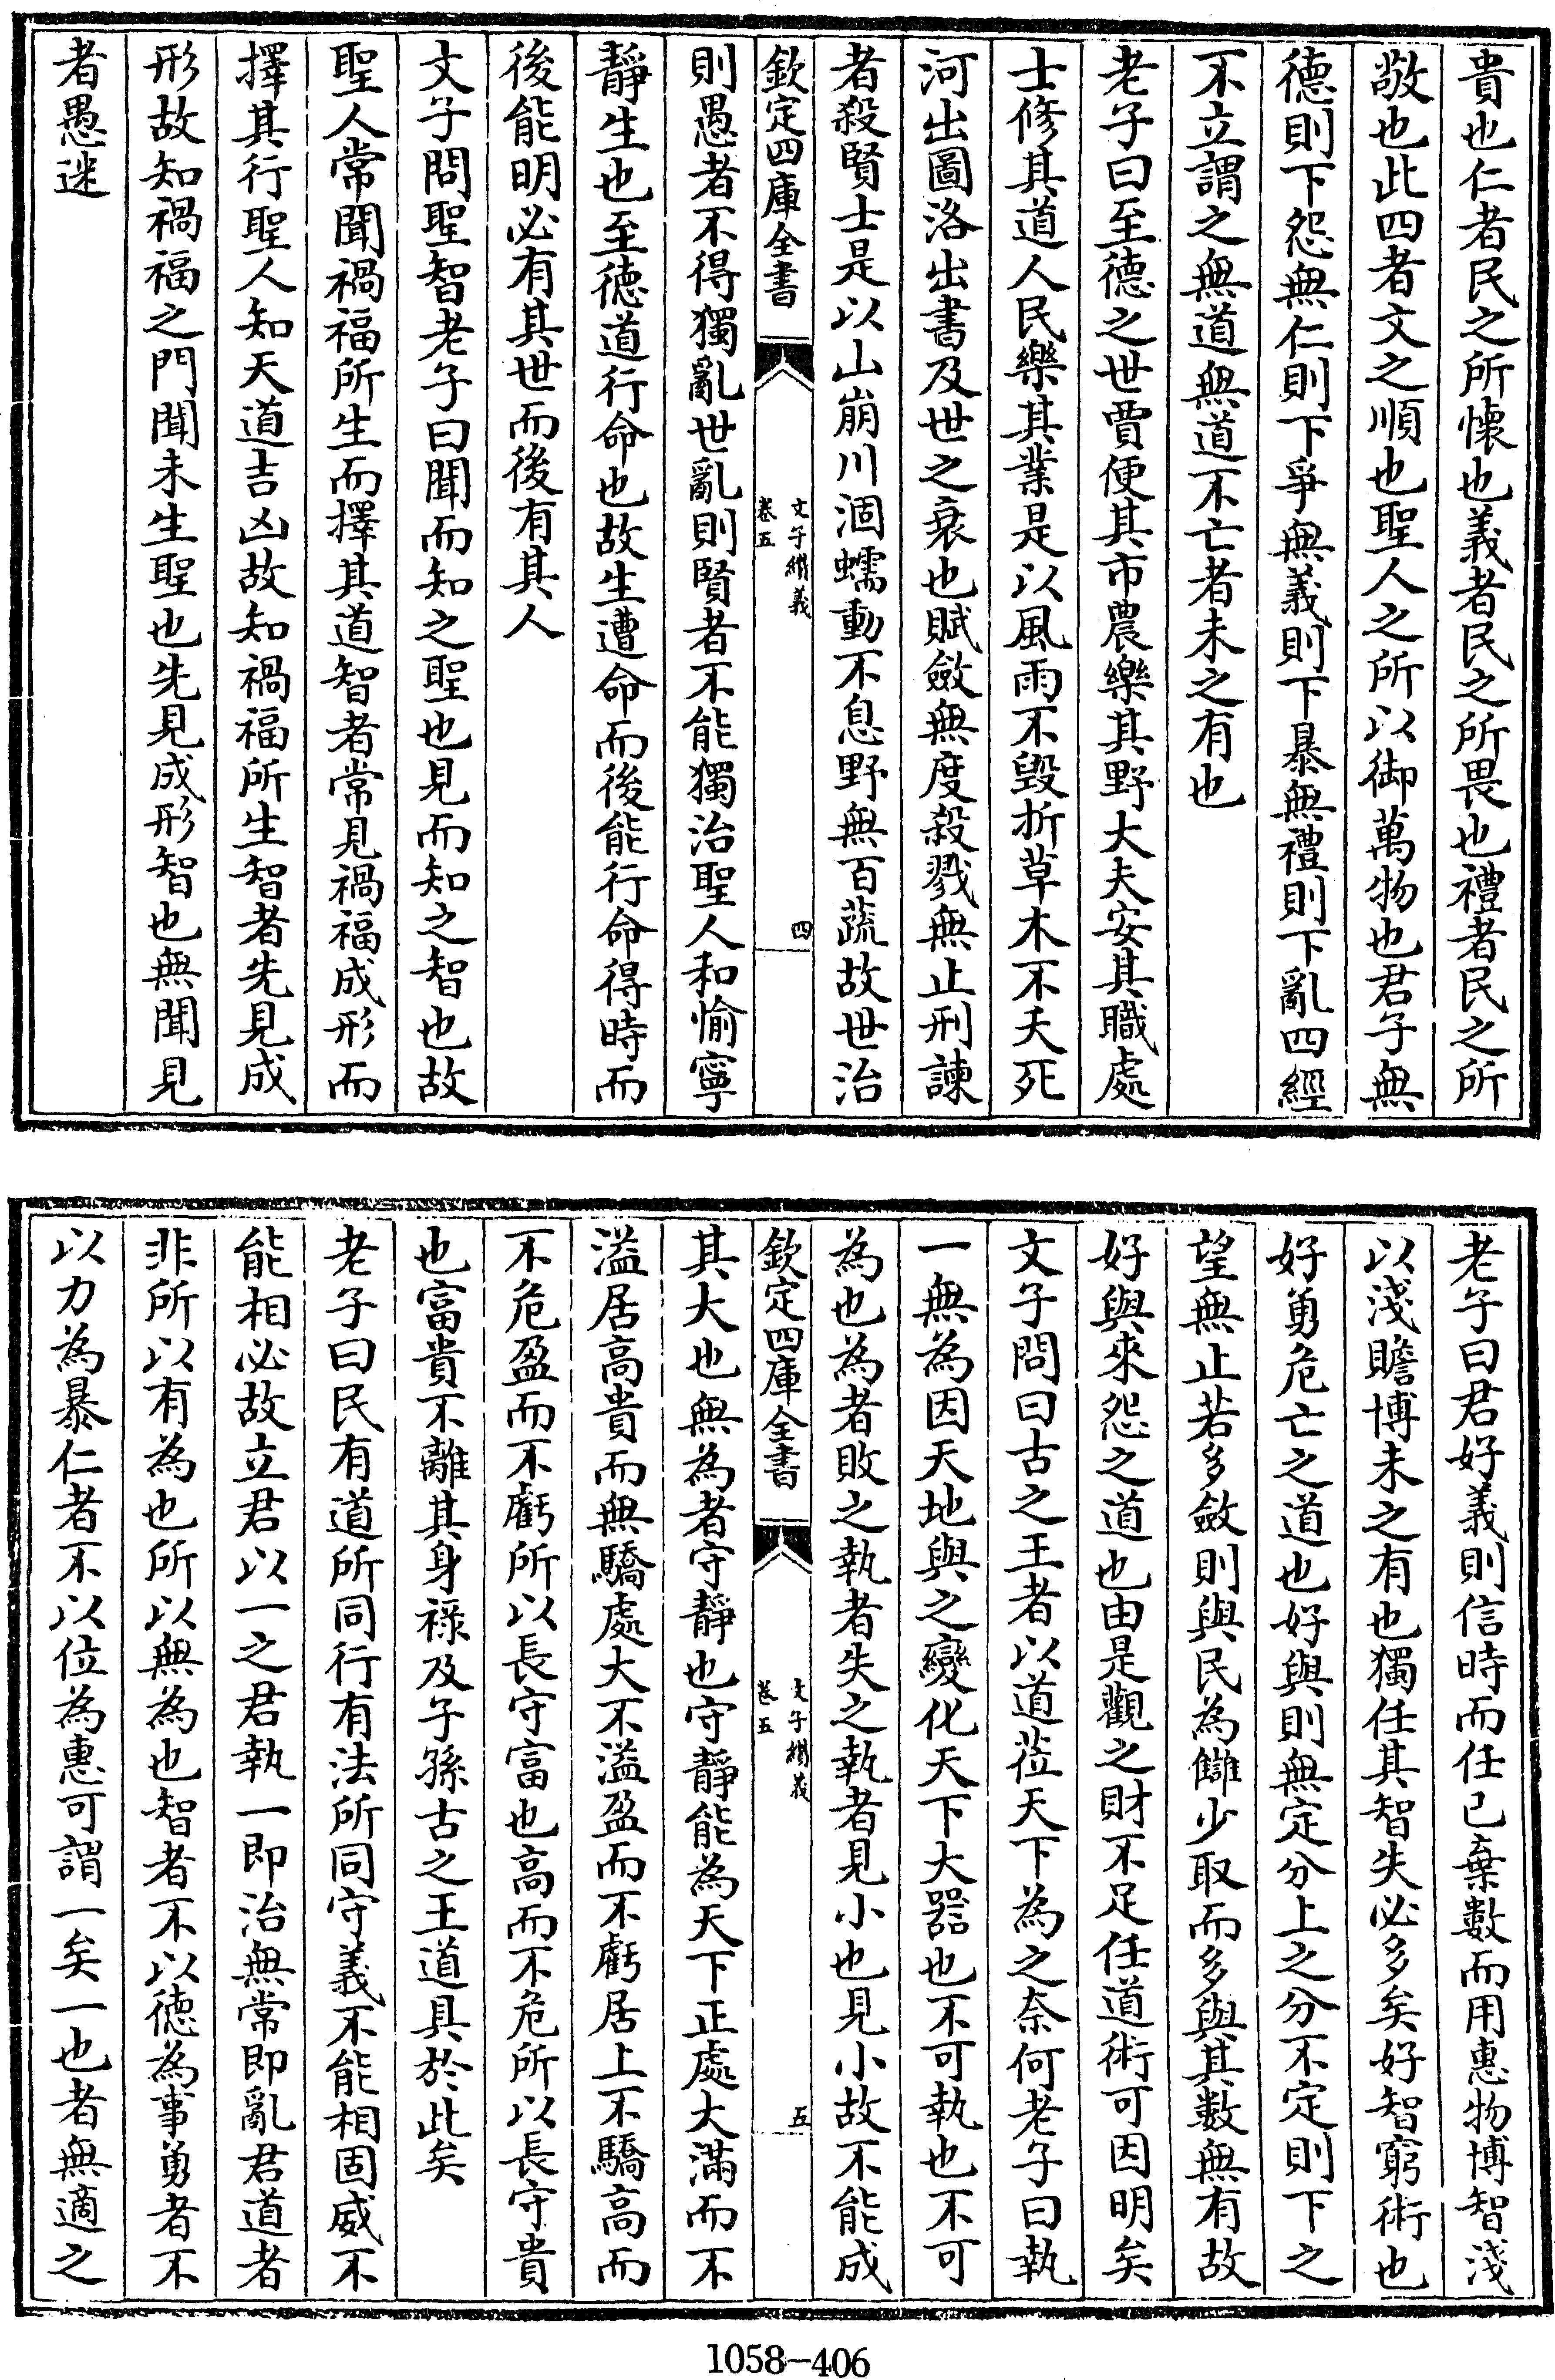 貴也仁者民之所懷也義者民之所畏也禮者民之所
敬也此四者文之順也聖人之所以御萬物也君子無
德則下怨無仁則下爭無義則下暴無禮則下亂四經
不立謂之無道無道不亡者未之有也
老子曰至德之世賈便其市農樂其野大夫安其職處
士修其道人民樂其業是以風雨不毀折草木不夭死
河出圖洛出書及世之衰也賦斂無度殺戮無止刑諫
者殺賢士是以山崩川涸蠕動不息野無百蔬故世治
欽定四庫全書
文子纉義
卷五
四
則愚者不得獨亂世亂則賢者不能獨治聖人和愉寧
靜生也至德道行命也故生遭命而後能行命得時而
後能明必有其世而後有其人
文子問聖智老子曰聞而知之聖也見而知之智也故
聖人常聞禍福所生而擇其道智者常見禍福成形而
擇其行聖人知天道吉凶故知禍福所生智者先見成
形故知禍福之門聞未生聖也先見成形智也無聞見
者愚迷
老子曰君好義則信時而任已棄數而用惠物博智淺
以淺贍博未之有也獨任其智失必多矣好智窮術也
好勇危亡之道也好與則無定分上之分不定則下之
望無止若多斂則與民為讎少取而多與其數無有故
好與來怨之道也由是觀之財不足任道術可因明矣
文子問曰古之王者以道莅天下為之奈何老子曰執
一無為因天地與之變化天下大器也不可執也不可
為也為者敗之執者失之執者見小也見小故不能成
欽定四庫全書
文子纉義
卷五
五
其大也無為者守靜也守靜能為天下正處大滿而不
溢居高貴而無驕處大不溢盈而不虧居上不驕高而
不危盈而不虧所以長守富也高而不危所以長守貴
也富貴不離其身祿及子孫古之王道具於此矣
老子曰民有道所同行有法所同守義不能相固威不
能相必故立君以一之君執一即治無常即亂君道者
非所以有為也所以無為也智者不以德為事勇者不
以力為暴仁者不以位為惠可謂一矣一也者無適之
1058-406